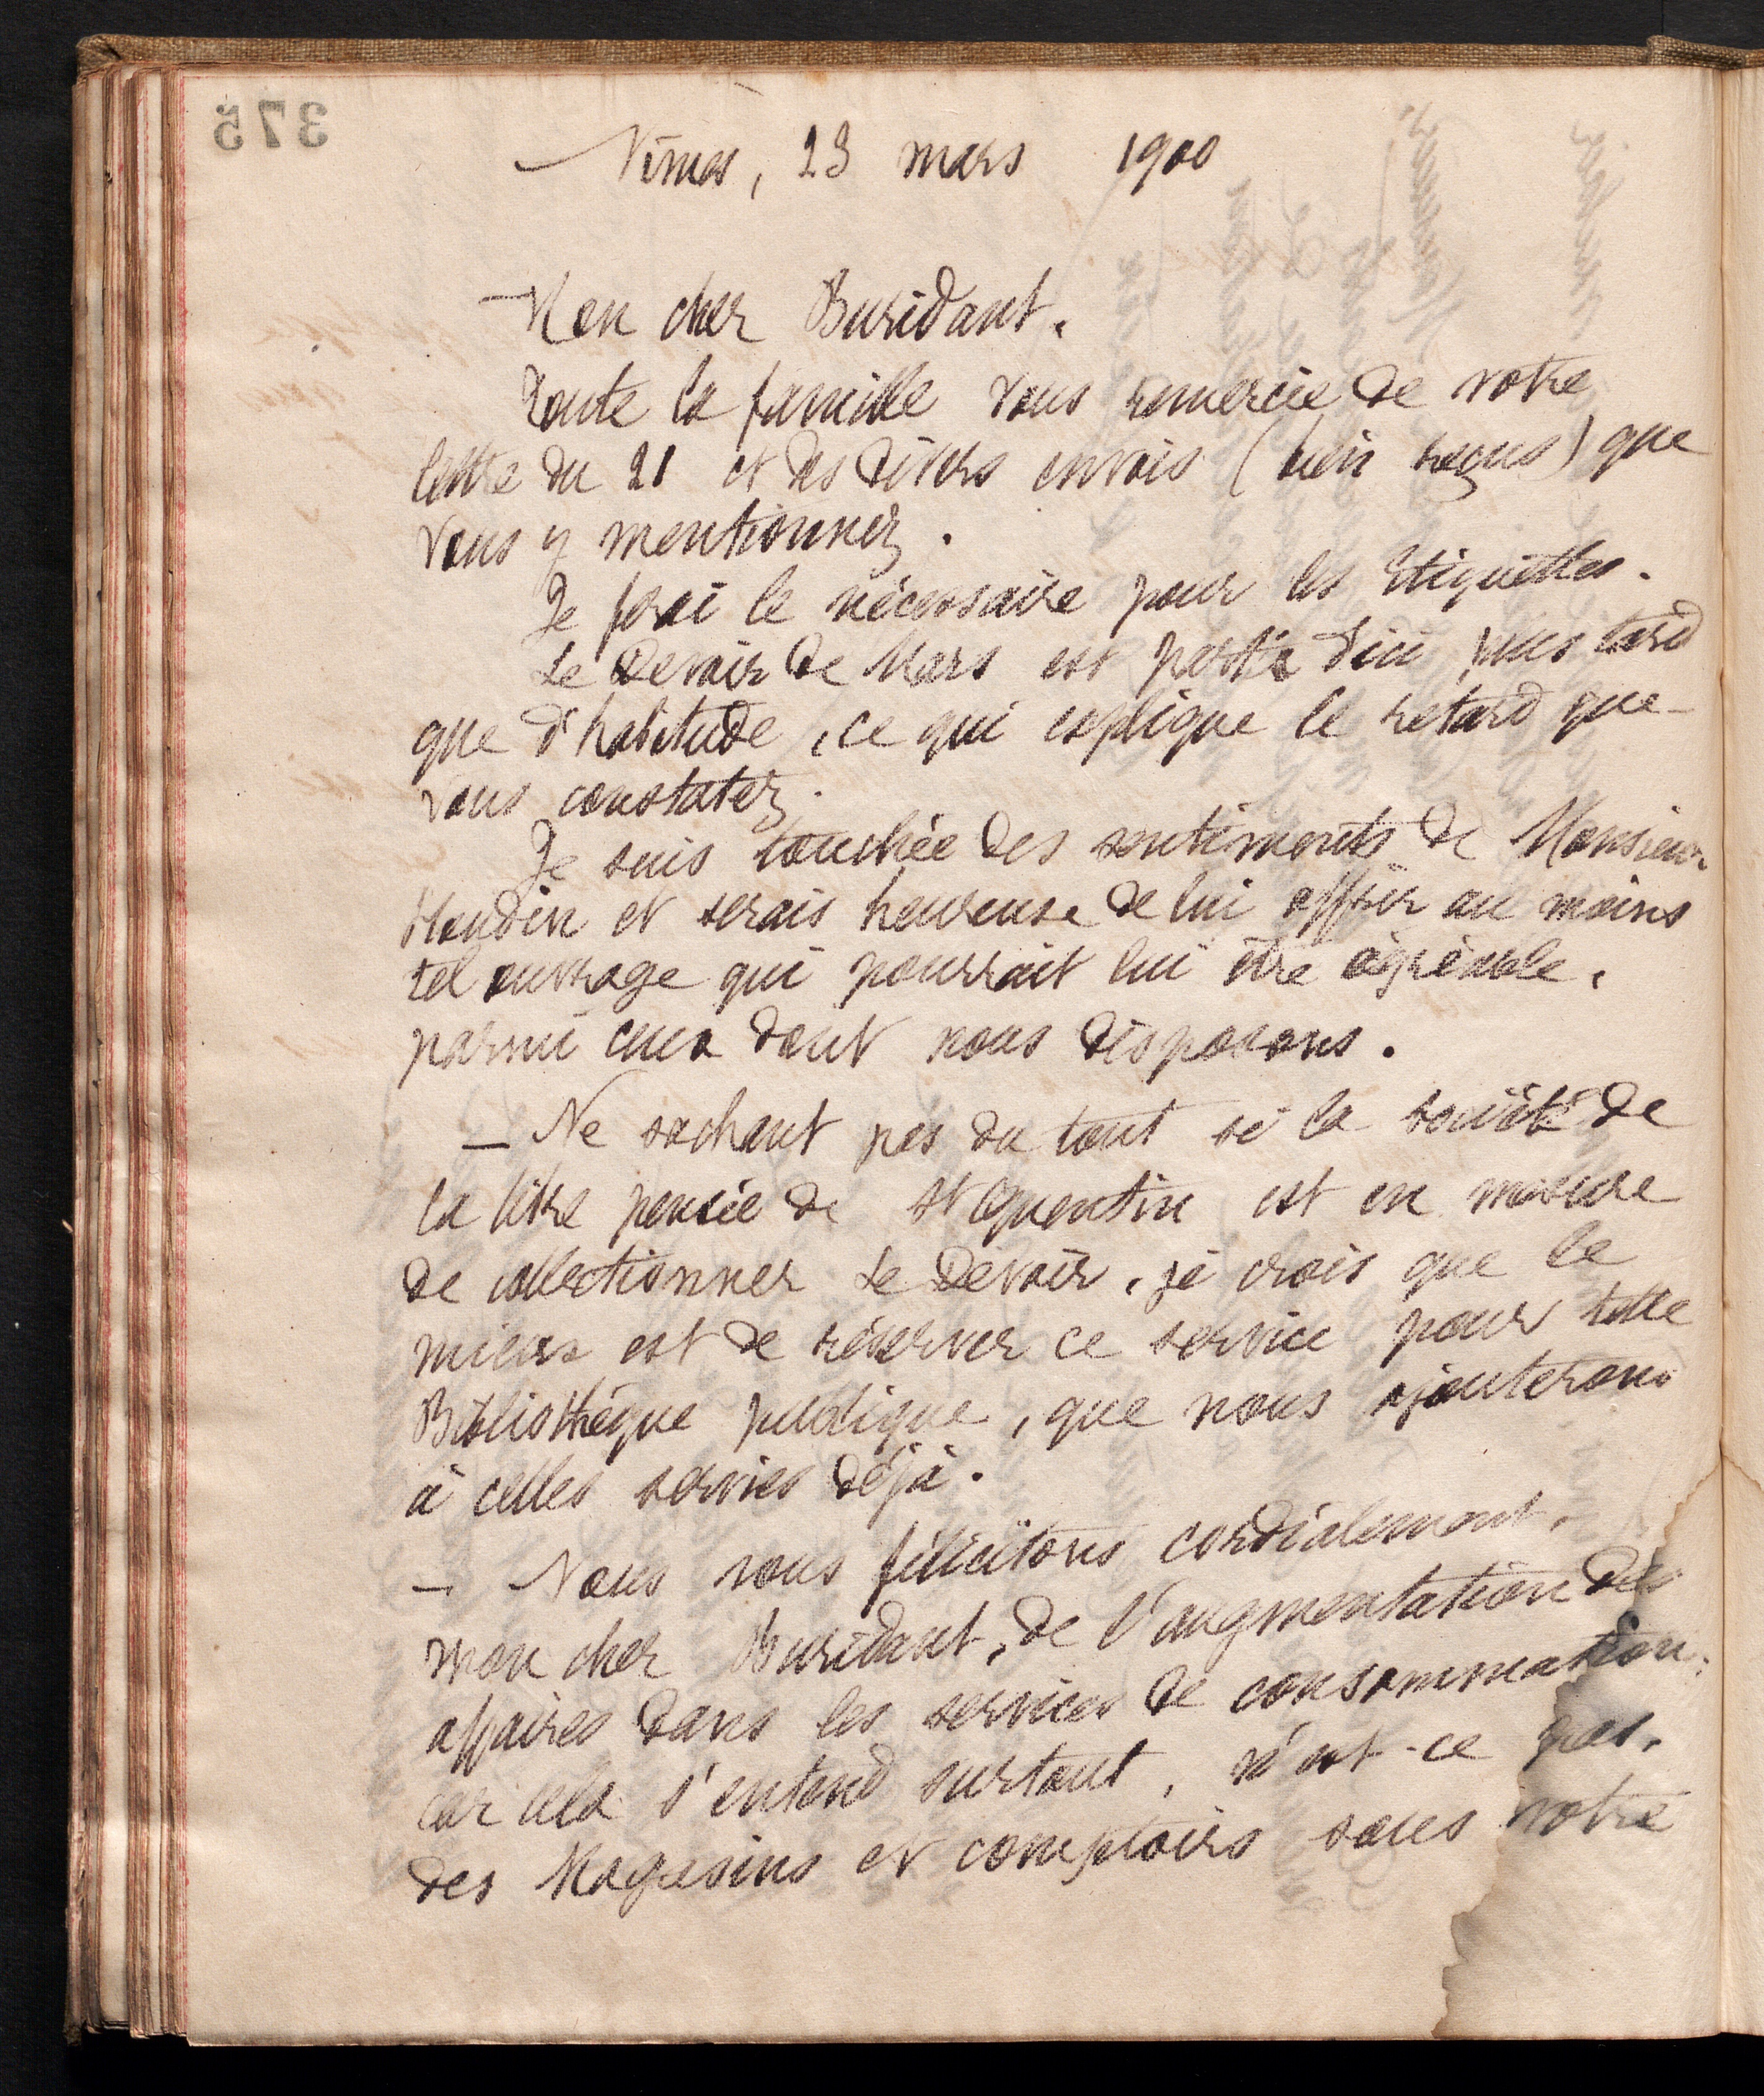 375
Nîmes, 23 mars 1900
Mon cher Buridant,
Toute la famille vous remercie de votre
lettre du 21 et des divers envois (bien reçus) que
vous y mentionnez.
Je ferai le nécessaire pour les Etiquettes.
Le Devoir de Mars est parti d'ici plus tard
que d'habitude, ce qui explique le retard que
vous constatez.
Je suis touchée des sentiments de Monsieur
et serais heureuse de lui offrir au moins
tel ouvrage qui pourrait lui être agréable,
parmi ceux dont nous disposons.
— Ne sachant pas du tout si la société de
la libre pensée de St Quentin est en mesure
de collectionner Le Devoir, je crois que le
mieux est de réserver ce service pour telle
Bibliothèque publique, que nous ajouterons
à celles servies déjà.
— Nous vous félicitons cordialement,
mon cher Buridant, de l'augmentation des
affaires dans les services de consommation,
car cela s'entend surtout, n'est-ce pas,
des Magasins et comptoirs sous votre